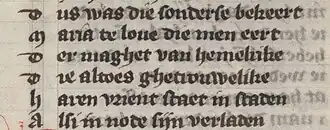 D us was die sonderse bekeert
M aria te loue die men eert
D er maghet van hemelrike
D ie altoes ghetrouwelike
h aren vrient staet in staden
A lsi in node sijn verladen